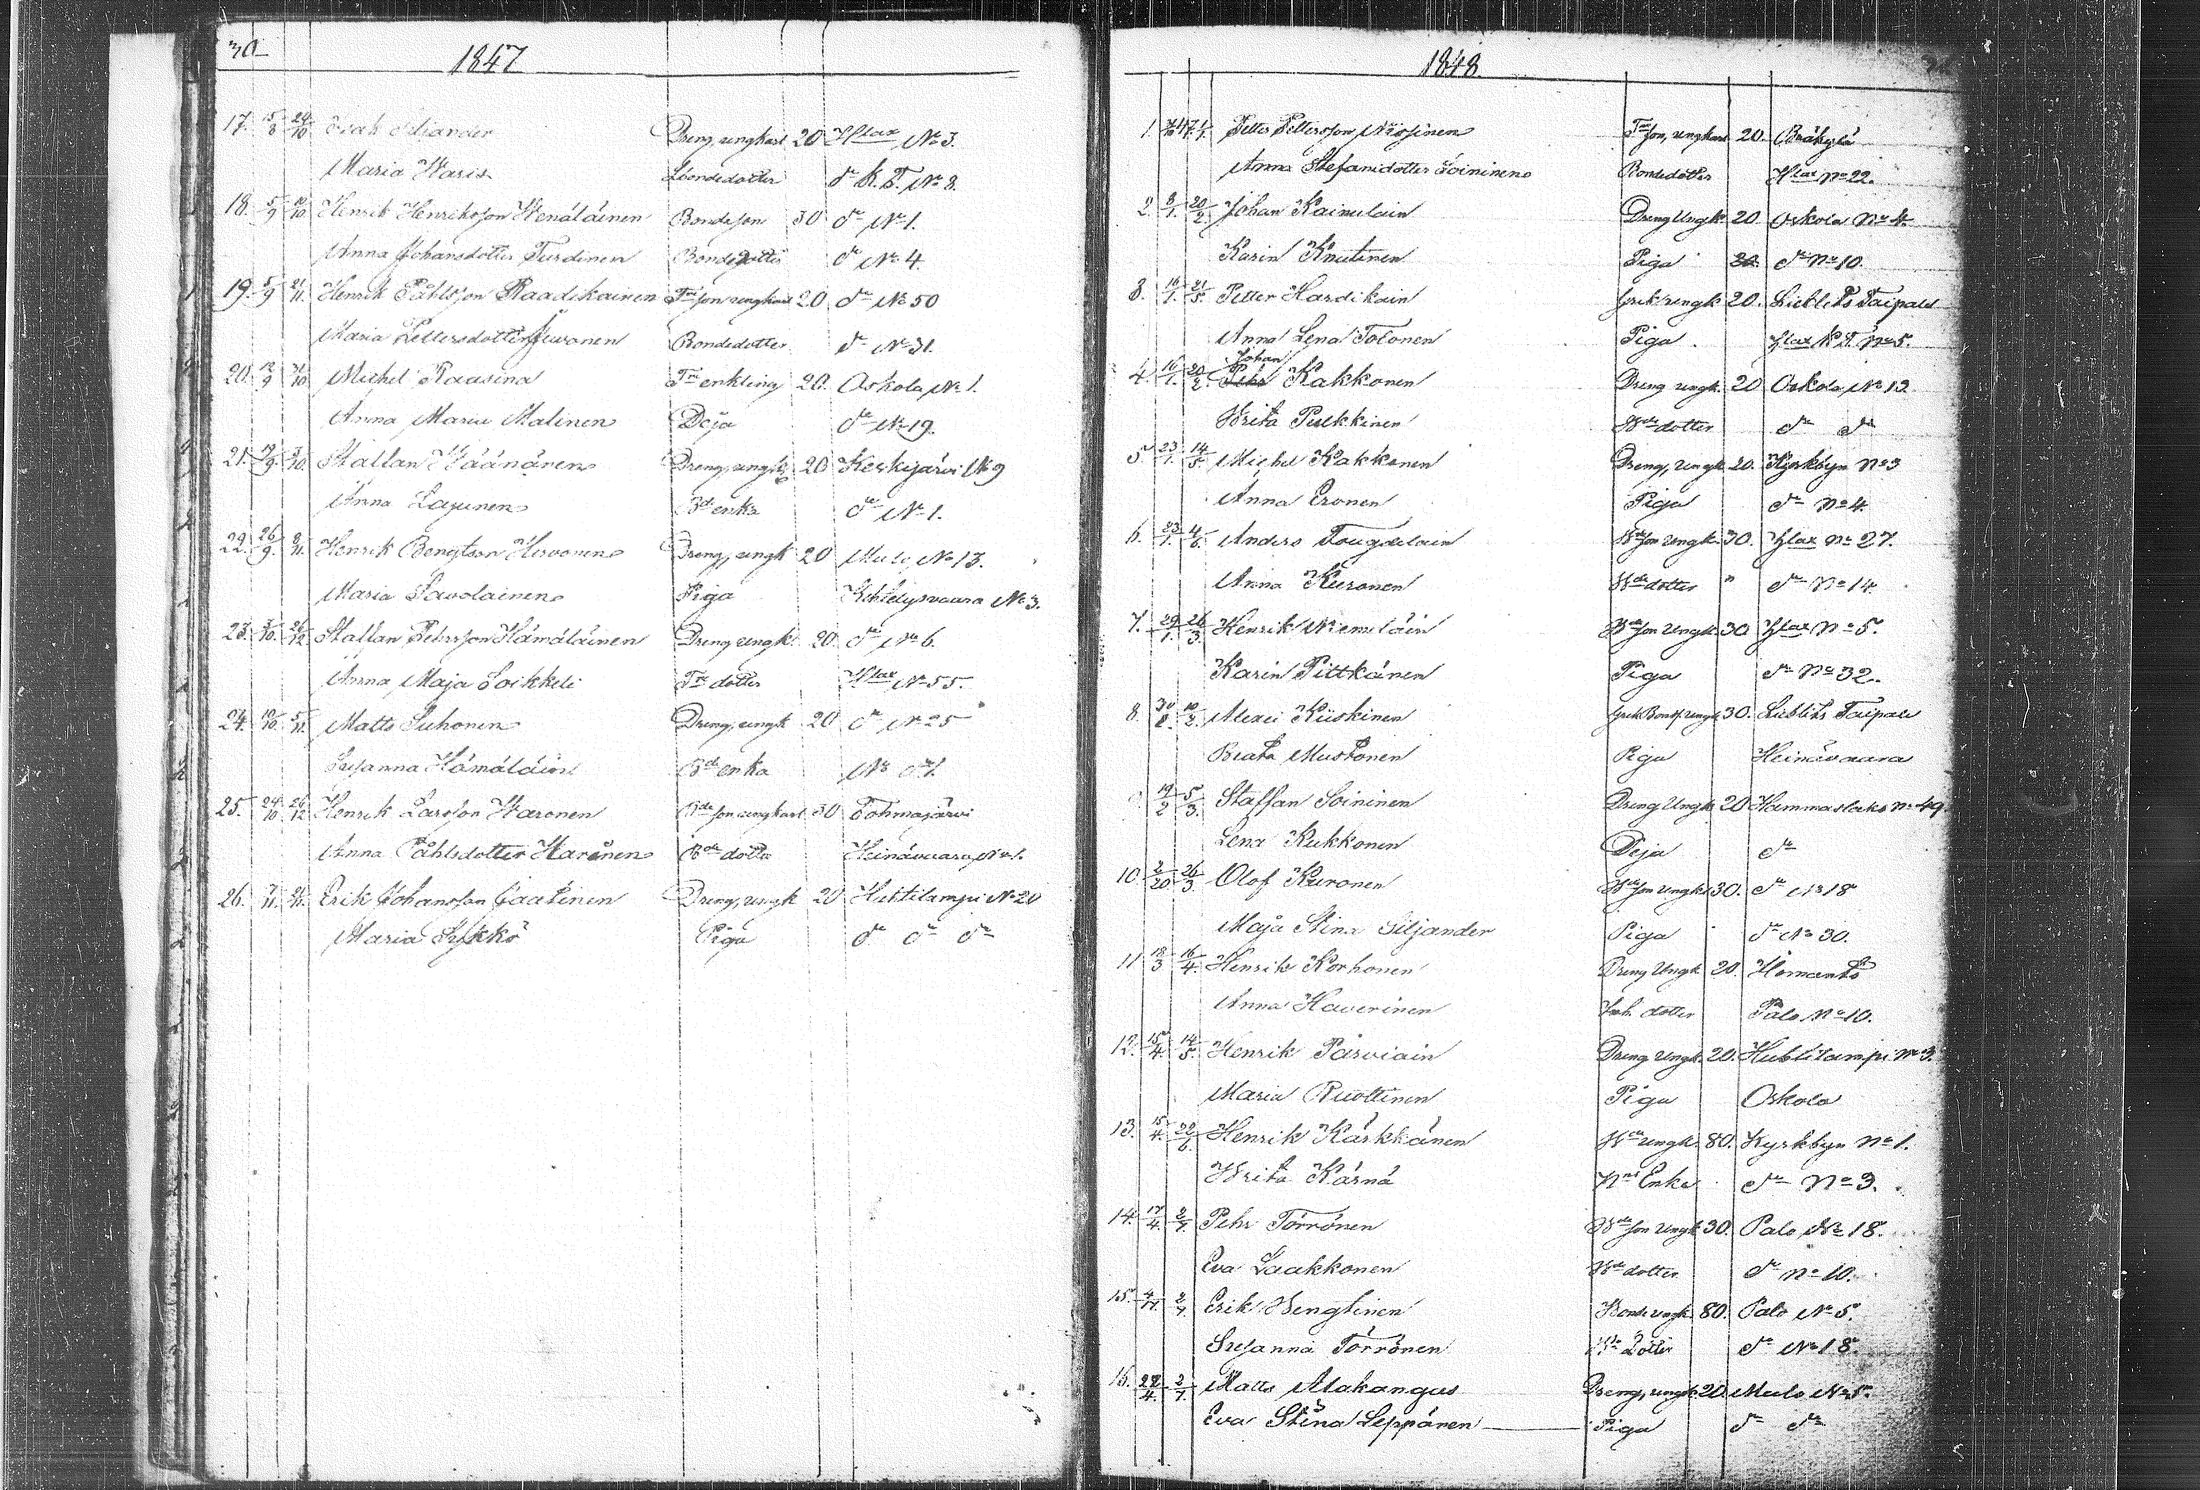 30
1847
17. 15/8 24/10 Isak Siljander Dreng, ungkarl 20 Hlax No 3.
Maria Waris Bondedotter do K. T. No 8.
18. 5/9 10/10 Henrik Henriksson Wenäläinen Bondeson 30 do No 1.
Anna Johansdotter Turdinen Bondedotter do No 4.
19. 5/9 21/11 Henrik Påhlsson Raadikainen Tm son ungkarl 20 do No 50
Maria Pettersdotter Juvonen Bondedotter do No 31.
20. 12/9 31/10 Michel Raasina Tm enkling 20. Oskola No 1.
Anna Maria Malinen Deja do No 19.
21. 19/9 3/10 Staffan Väänänen Dreng, ungk 20 Keskijärvi No 9
Anna Lagunen Bde enka do No 1.
22. 26/9 8/11 Henrik Bengtson Hirvonen Dreng, ungk 20 Mulo No 13.
Maria Savolainen Piga Kihtelysvaara No 3.
23. 3/10 26/12 Staffan Pehrsson Hämäläinen Dreng ungk 20 do No 6.
Anna Maja Soikkeli Tm dotter Hlax No 55.
24. 10/10 5/11 Matts Suhonen Dreng, ungk 20 do No 5
Susanna Hämäläin Bde enka No
25. 24/10 26/12 Henrik Larsson Waronen Bde son ungkarl 30 Tohmajärvi
Anna Påhlsdotter Haronen Bde dotter Heinävaara No 1.
26. 7/11 21/11 Erik Johansson Jaatinen Dreng, ungk 20 Huhtilampi No 20
Maria Sykkö Piga do do do
1848
1. Petter Pettersson Nissinen Tm son, ungkarl 20.
Anna Stefansdotter Soininen Bondedotter Hlax No 22.
2. 8/1. 20/2. Johan Kainulain Dreng Ungk. 20 Oskola No 4.
Karin Knutinen Piga do No 10.
3. 16/1. 21/5. Petter Hardikain Grek ungk 20. Liebelits Taipale
Anna Lena Tolonen Piga. Hlax K. T. No 5.
Johan
4. 16/1. 20/2. Pehr Kakkonen Dreng ungk. 20 Oskola No 13.
Brita Pulkkinen Bde dotter do do
5 23/1. 14/5. Michel Kakkonen Dreng, ungk. 20. Kyrkbyn No 3
Anna Eronen Piga do No 4.
6. 23/1. Anders Tougdelain Bde son ungk. 30. Hlax No 27.
Anna Kuronen Bde dotter " do No 14.
7. 29/1. 26/3. Henrik Niemeläin Bde son ungk. 30 Hlax No 5.
Karin Pittkänen Piga do No 32.
8. Alexei Kiiskinen Grek Bonde, ungk 30. Liebelits Taipale
Beata Mustonen Piga Heinävaara
19/2 5/3. Staffan Soininen Dreng Ungk 20 Hammaslaks No 49.
Lena Kukkonen Deja do
10. 26/3. Olof Kuronen Bde son ungk 30. do No 18
Maja Stina Siljander Piga do No 30.
11 18/3 16/4. Henrik Korhonen Dreng Ungk. 20. Ilomants
Anna Haverinen Inh. dotter Palo No 10.
12. 15/4. 14/5. Henrik Parviain Dreng Ungk. 20. Huhtilampi No 3.
Maria Ruottinen Piga Oskola
13. 15/4. Henrik Kärkkänen Bde ungk. 80. Kyrkbyn No 1.
Brita Kärnä Enka do No 3.
14. 17/4. 2/7. Pehr Törrönen Bde son ungk 30. Palo No 18.
Eva Laakkonen Bde dotter do No 10.
15. 2/7. Erik Bengtinen Bonde ungk. 80. Palo No 5.
Susanna Törrönen Bde Dotter do No 18.
16. 22/4. 2/7. Matts Alakangus Dreng, ungk. 20 Mulo No 5.
Eva Stina Leppänen Piga do do